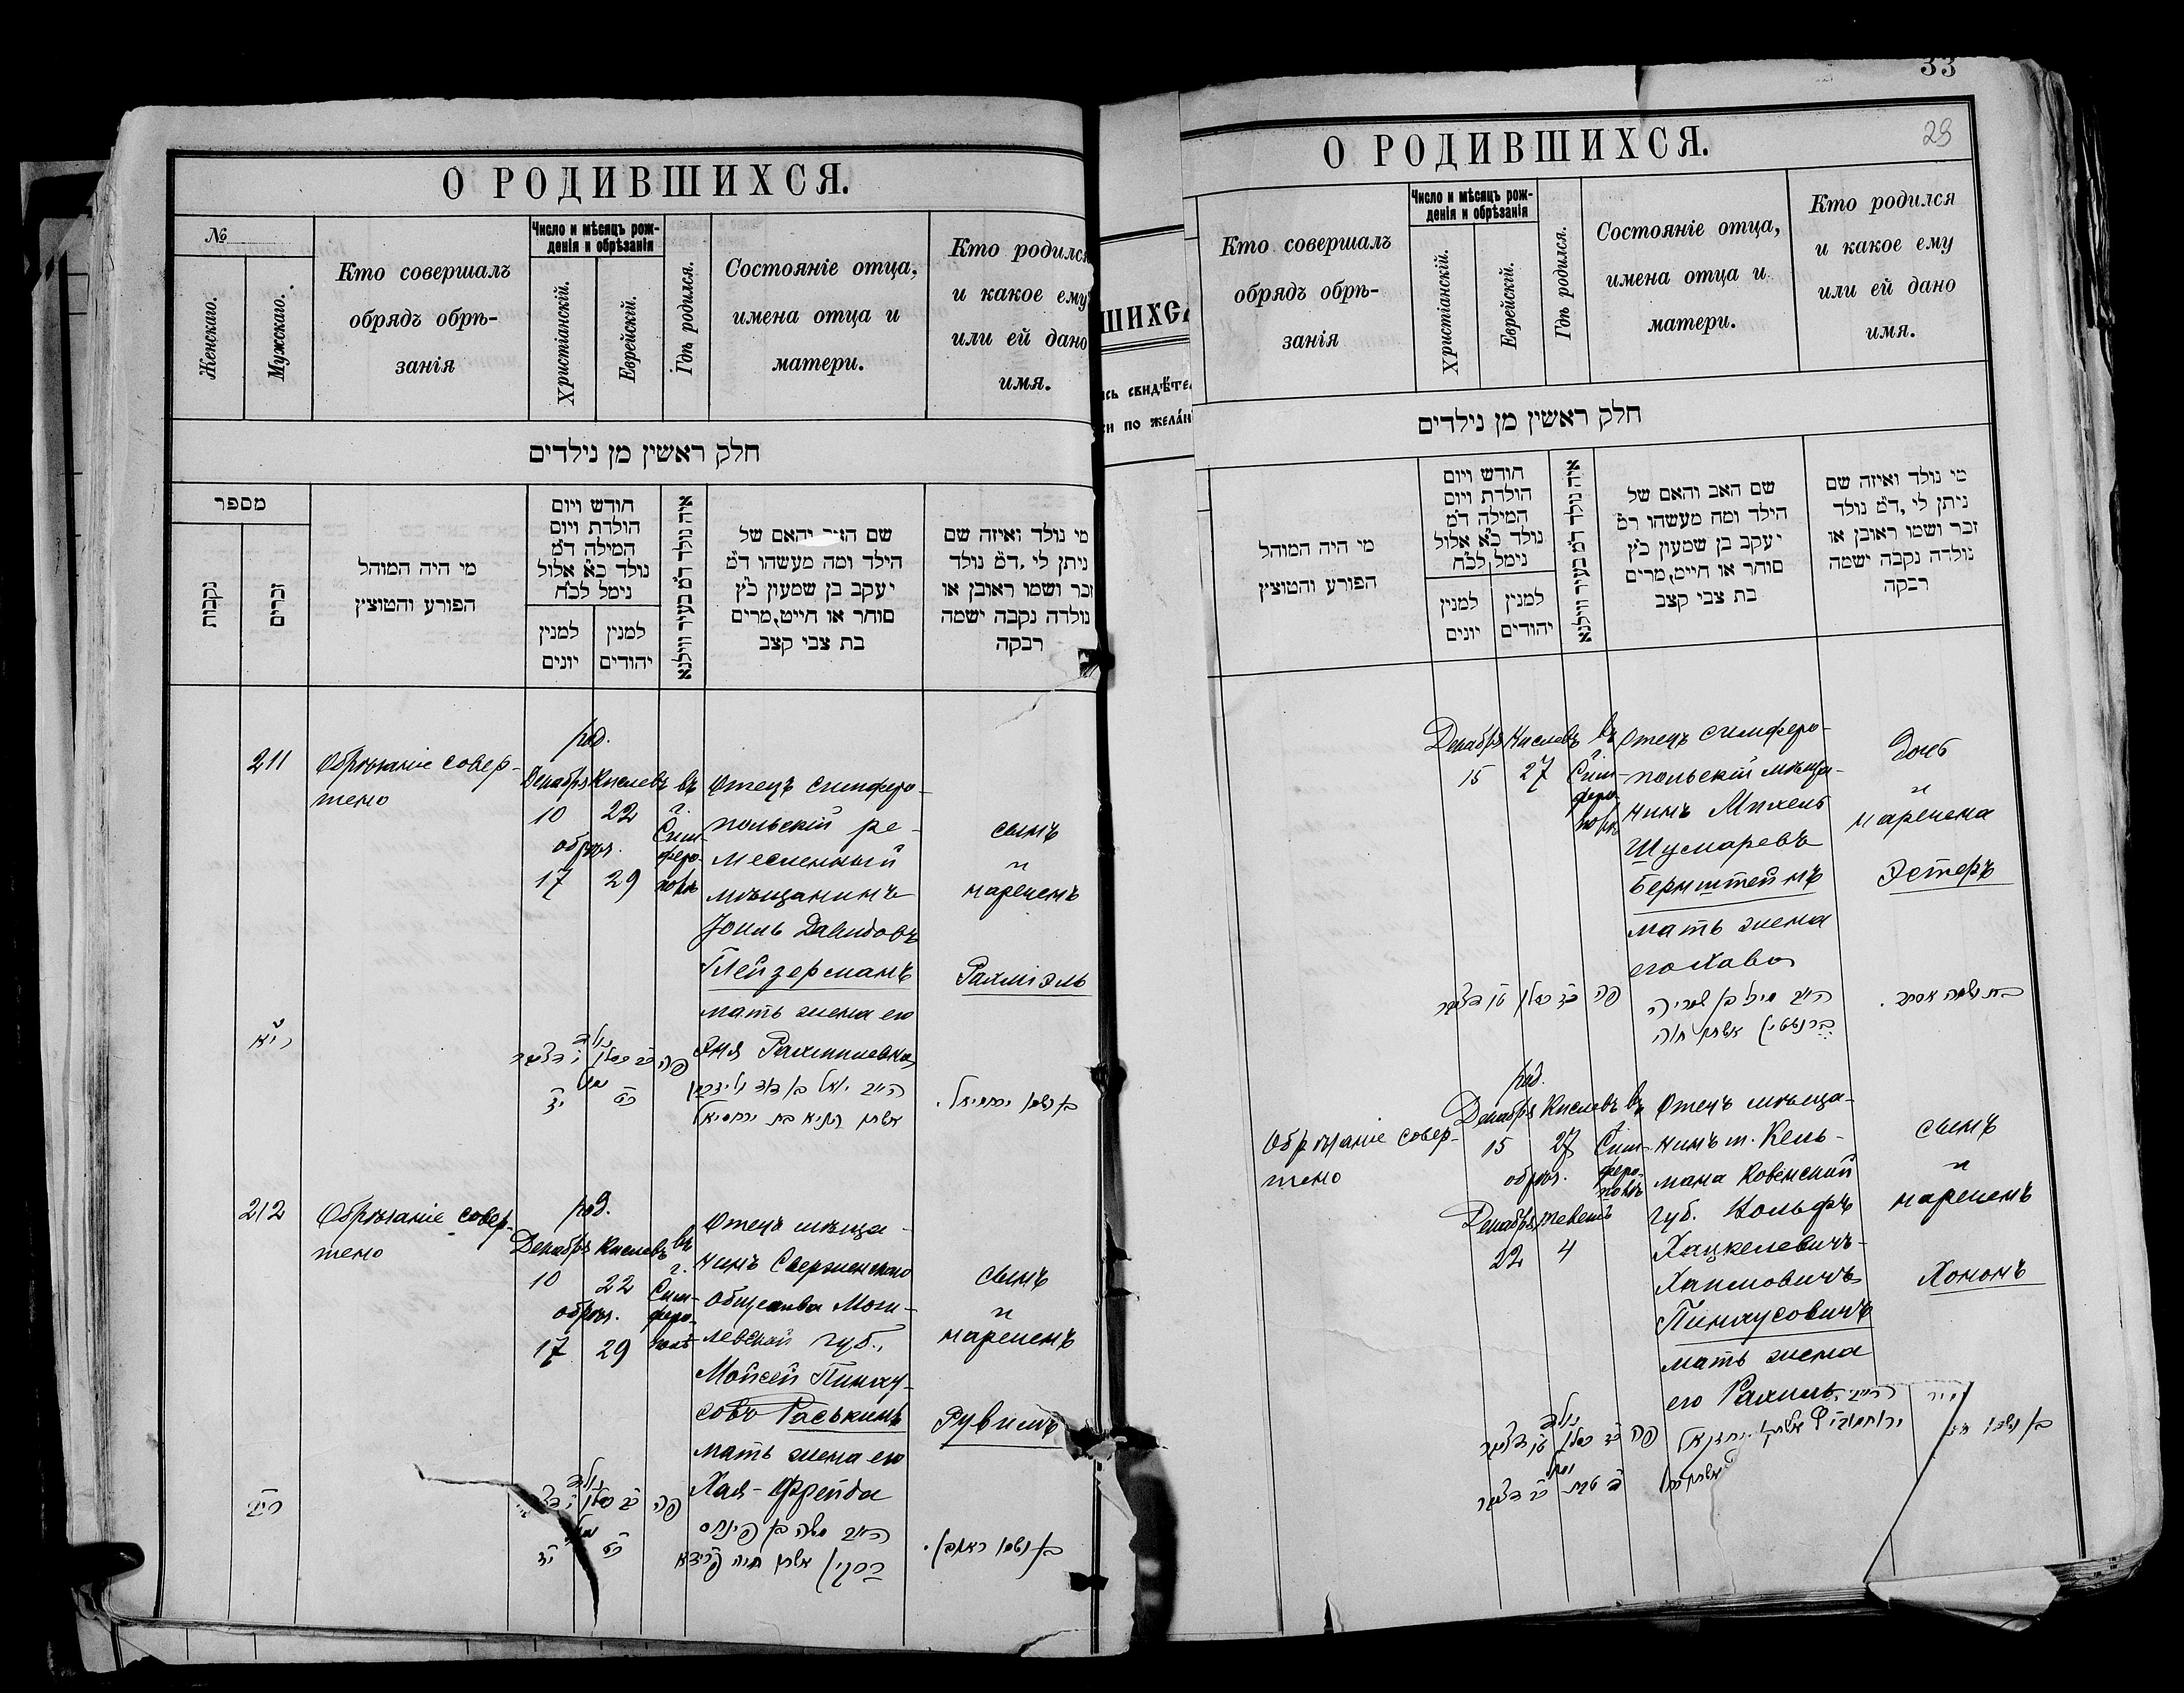 О РОДИВШИХСЯ.
№
Женскаго.
Мужскаго.
Кто совершалъ
обрядъ обрѣ-
занія
Число и мѣсяцъ рож-
денія и обрѣзанія
Христіанскій.
Еврейскій.
Гдѣ родился.
Состояніе отца,
имена отца и
матери.
Кто родился
и какое ему
или ей дано
имя.
חלק ראשין מן נילדים
מספר
נקבות
זכרים
מי היה המוהל
הפורע והטוצץ
חודש ויום
הולדת ויום
המילה דמ
נולד כ״א אלול
נימל לכ״ח
למנין
יונים
למנין
יהודים
איה נולד דמ בעיר ווילנא
שם והאם של
הילד ומה מעשהו דמ
יעקב בן שמעון כ״ץ
סוחר או חייט, מרים
בת צבי קצב
מי נולד ואיזה שם
ניתן לי, דמ נולד
זכר ושמו ראובן או
נולדה נקבה ישמה
רבקה
211
Обрѣзаніе совер-
шено
род.
Декабря Кислевъ
10 22
обрѣз.
17 29
въ
г.
Сим-
феро-
полѣ
Отецъ симферо-
польскій ре-
месленный
мѣщанинъ
Іоиль Давидовъ
Глейзерманъ
мать жена его
Рахмилевна
сынъ
и
нареченъ
Рахміэль
פה
212
Обрѣзаніе совер-
шено
род.
Декабря Кислевъ
10 22
обрѣз.
17 29
въ
г.
Сим-
феро-
полѣ
Отецъ мѣща-
нинъ Сверженскаго
Общества Моги-
левской губ.,
Мойсей Пинху-
совъ Раськинъ
мать жена его
Хая-Фрейда
сынъ
и
нареченъ
Рувимъ
פה
הייב משה בן פינחס
רסקין אשתו חיה פריידא
בן ושמו ראובן.
ШИХСЯ
сь свидѣте
и по жела́н
33
29
О РОДИВШИХСЯ.
Кто совершалъ
обрядъ обрѣ-
занія
Число и мѣсяцъ рож-
денія и обрѣзанія
Христіанскій.
Еврейскій.
Гдѣ родился.
Состояніе отца,
имена отца и
матери.
Кто родился
и какое ему
или ей дано
имя.
חלק ראשין מן נילדים
מי היה המוהל
הפורע והטוצץ
חודש ויום
הולדת ויום
המילה דמ
נולד כ״א אלול
נימל לכ״ח
למנין
יונים
למנין
יהודים
איה נולד דמ בעיר ווילנא
שם האב והאם של
הילד ומה מעשהו דמ
יעקב בן שמעון כ״ץ
סוחר או חייט, מרים
בת צבי קצב
מי נולד ואיזה שם
ניתן לי, דמ נולד
זכר ושמו ראובן או
נולדה נקבה ישמה
רבקה
Декабря Кислевъ
15 27
въ
г.
Сим-
феро-
полѣ
Отецъ симферо-
польскій мѣща-
нинъ Михель
Шумаревъ
Бернштейнъ
мать жена
его Хава
дочь
и
наречена
Эстеръ
פה
ברנשטיין אשתו חוה
בת ושמה אסתר.
Обрѣзаніе совер-
шено
род.
Декабря Кислевъ
15 27
обрѣз.
Декабря Теветъ
22 4
въ
г.
Сим-
феро-
полѣ
Отецъ мѣща-
нинъ м. Кель-
мана Ковенской
губ. Вольфъ
Хацкелевичъ-
Хаимовичъ
Пинхусовичъ
мать жена
его Рахиль
сынъ
и
нареченъ
Хононъ
פה